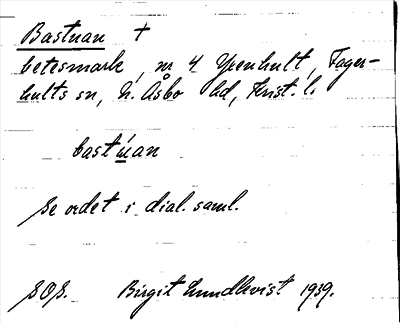 Bastuan †
betesmark, nr 4 Ypenhult, Fager-
hults sn, N. Åsbo hd, Krist. l.
bastu̱an
se ordet i dial. saml.
SOS. Birgit Lundkvist 1939.